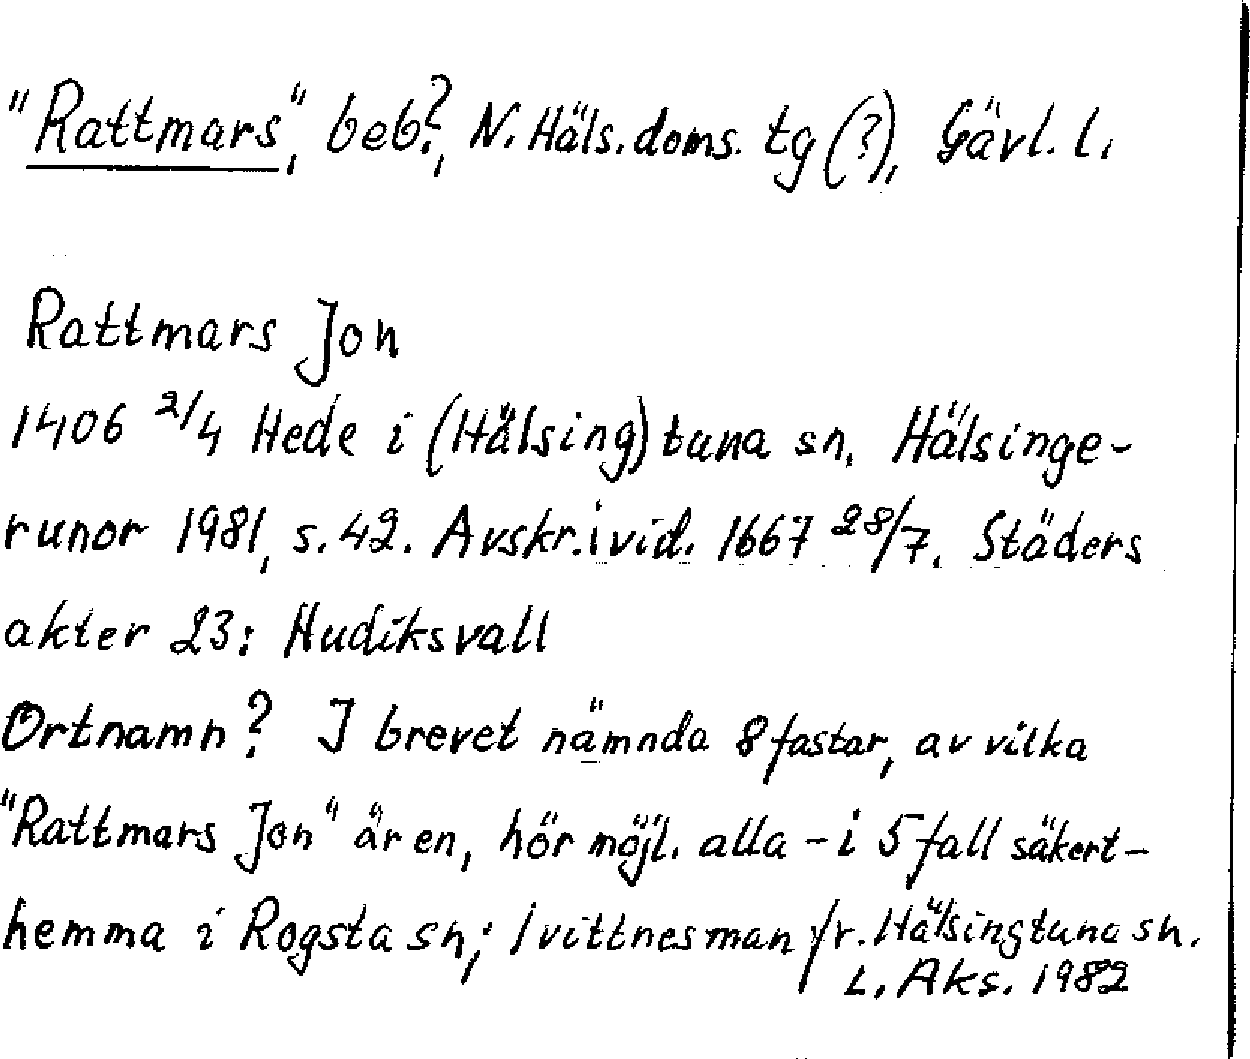 "Rattmars", beb?, N. Häls. doms. tg (?), Gävl. l.
Rattmars Jon
1406 2/4 Hede i (Hälsing)tuna sn. Hälsinge-
runor 1981, s. 42. Avskr. i vid. 1667 28/7. Städers
akter 23: Hudiksvall
Ortnamn? I brevet nämnda 8 fastar, av vilka
"Rattmars Jon" är en, hör möjl. alla - i 5 fall säkert -
hemma i Rogsta sn; 1 vittnesman fr. Hälsingtuna sn.
L. Aks. 1982